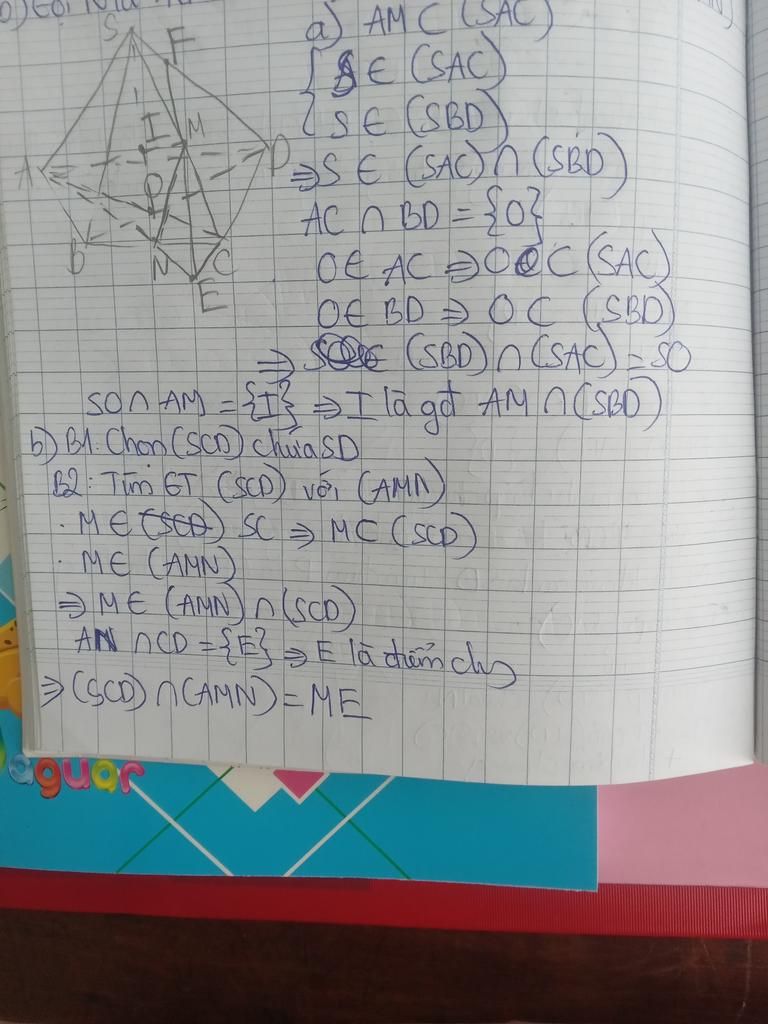 b) Gọi N là
a) AM ⊂ (SAC)
{ S ∈ (SAC)
{ S ∈ (SBD)
⇒ S ∈ (SAC) ∩ (SBD)
AC ∩ BD = {O}
O ∈ AC ⇒ O ⊂ (SAC)
O ∈ BD ⇒ O ⊂ (SBD)
⇒ (SBD) ∩ (SAC) = SO
SO ∩ AM = {I} ⇒ I là gđ AM ∩ (SBD)
b) B1: Chọn (SCD) chứa SD
B2: Tìm GT (SCD) với (AMN)
. M ∈ SC ⇒ M ⊂ (SCD)
. M ∈ (AMN)
⇒ M ∈ (AMN) ∩ (SCD)
AN ∩ CD = {E} ⇒ E là điểm chg
⇒ (SCD) ∩ (AMN) = ME
S
F
I
M
A
D
O
B
N
C
E
aguar